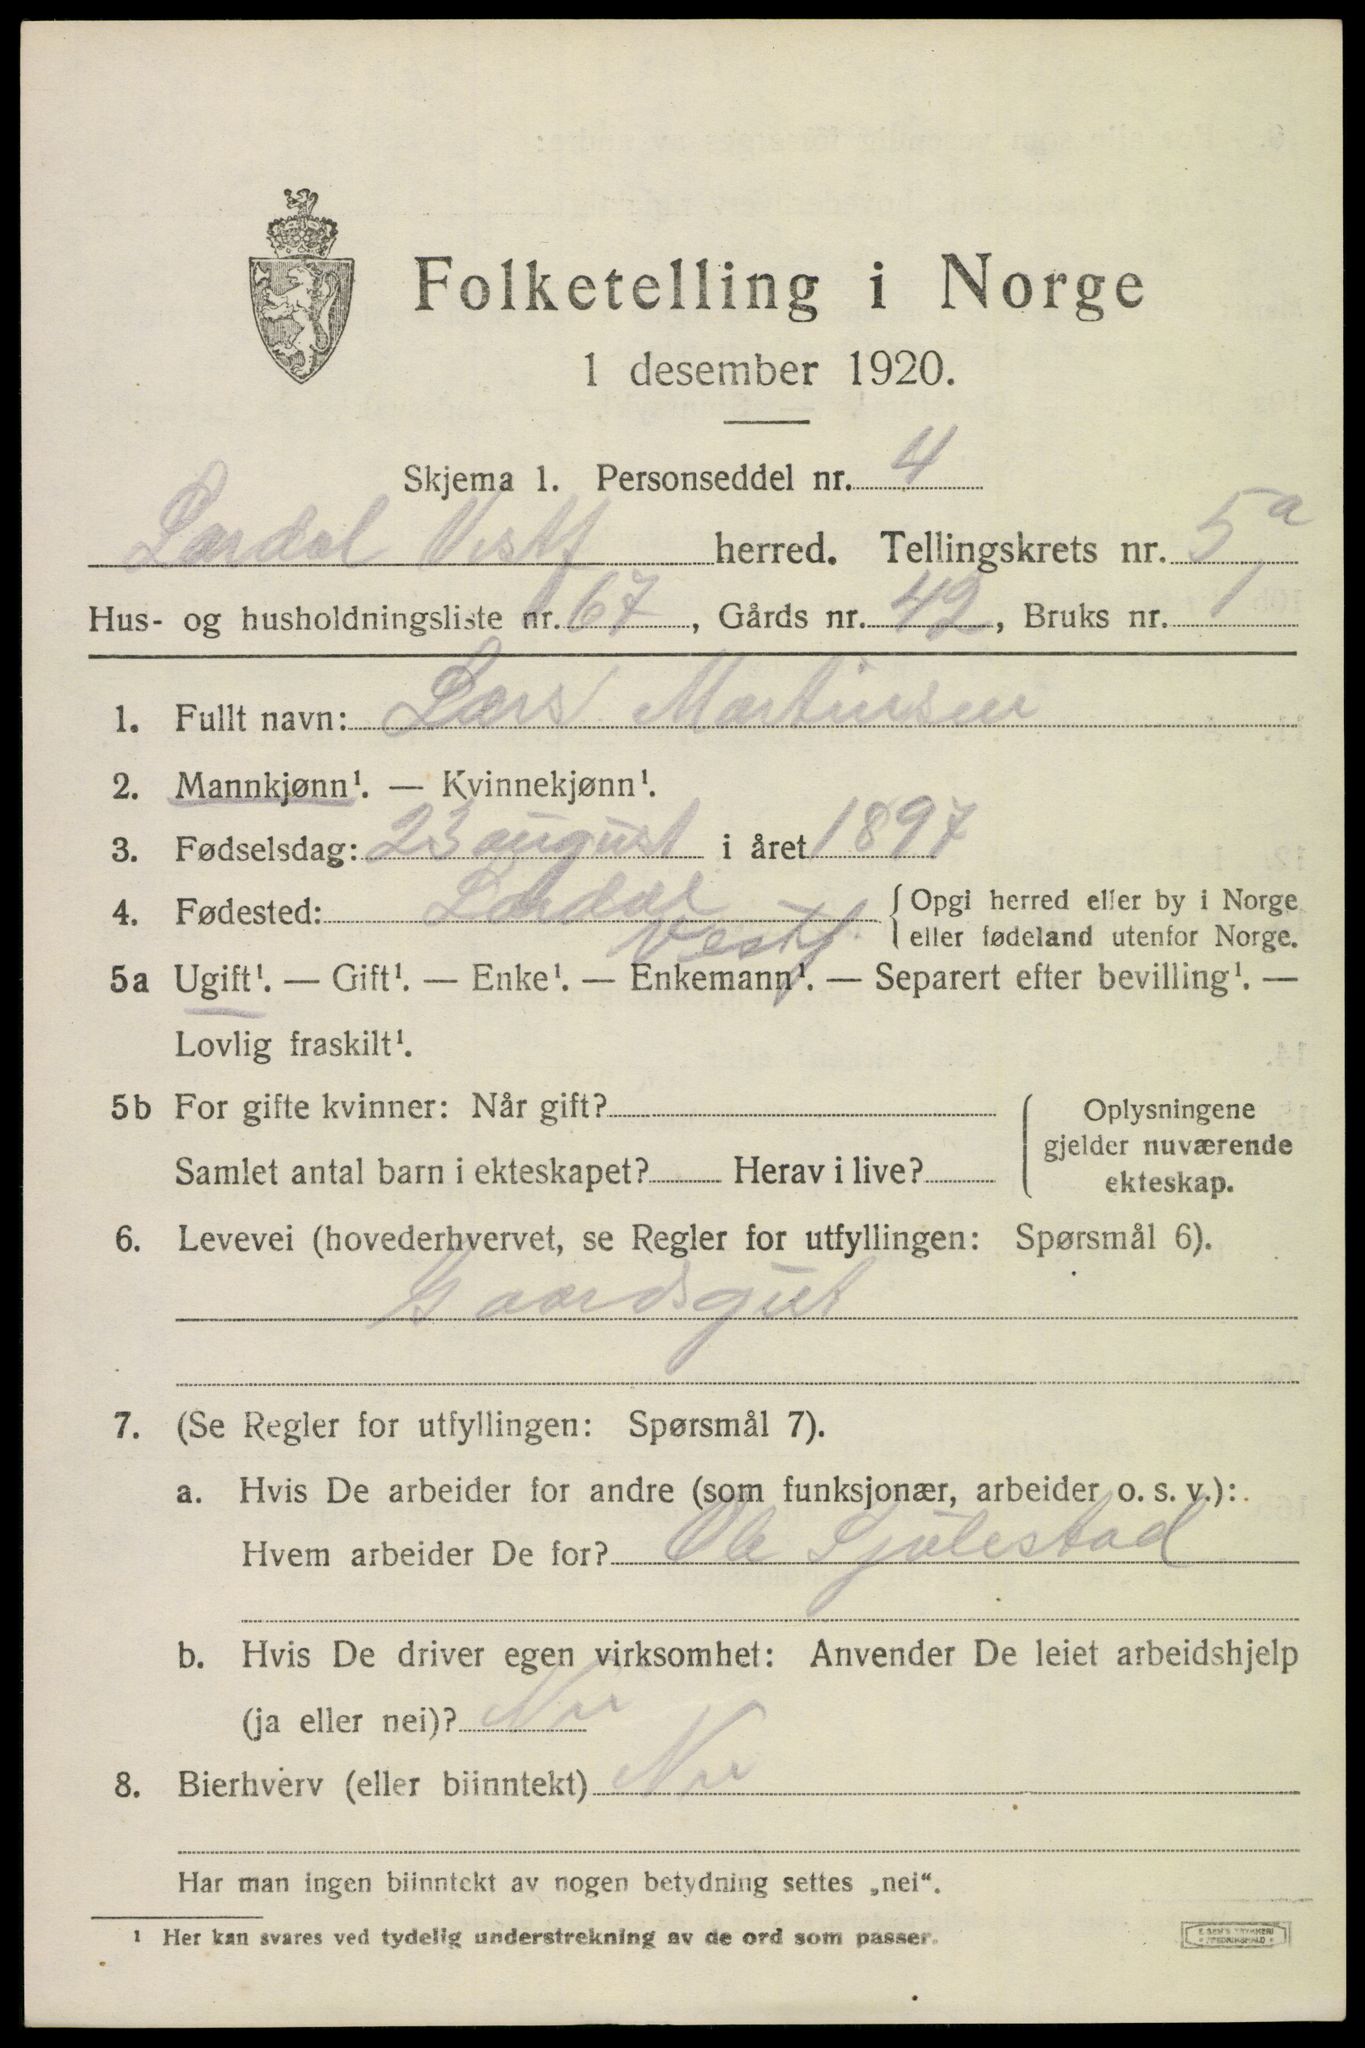 Folketelling i Norge
1 desember 1920.
Skjema 1. Personseddel nr. 4
Lardal Vestf herred. Tellingskrets nr. 5a
Hus- og husholdningsliste nr. 67, Gårds nr. 42, Bruks nr. 1
1. Fullt navn: Lars Martinsen
2. Mannkjønn¹. — Kvinnekjønn¹.
3. Fødselsdag: 23 august i året 1897
4. Fødested: Lardal { Opgi herred eller by i Norge
Vestf. eller fødeland utenfor Norge.
5a Ugift¹. — Gift¹. — Enke¹. — Enkemann¹. — Separert efter bevilling¹. —
Lovlig fraskilt¹.
5b For gifte kvinner: Når gift? { Oplysningene
gjelder nuværende
Samlet antal barn i ekteskapet? Herav i live? ekteskap.
6. Levevei (hovederhvervet, se Regler for utfyllingen: Spørsmål 6).
Gaardsgut
7. (Se Regler for utfyllingen: Spørsmål 7).
a. Hvis De arbeider for andre (som funksjonær, arbeider o. s. v.):
Hvem arbeider De for? Ole Sjulestad
b. Hvis De driver egen virksomhet: Anvender De leiet arbeidshjelp
(ja eller nei)? Nei
8. Bierhverv (eller biinntekt) Nei
Har man ingen biinntekt av nogen betydning settes „nei“.
¹ Her kan svares ved tydelig understrekning av de ord som passer.